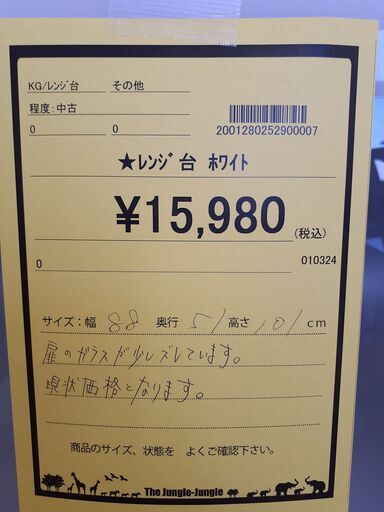 KG/レンジ台 その他
程度：中古
0 0
2001280252900007
★レンジ台 ホワイト
¥15,980 (税込)
0 010324
サイズ：幅 88 奥行 51 高さ 101 cm
扉のガラスが少しズレています。
現状価格となります。
商品のサイズ、状態を よくご確認下さい。
The Jungle-Jungle